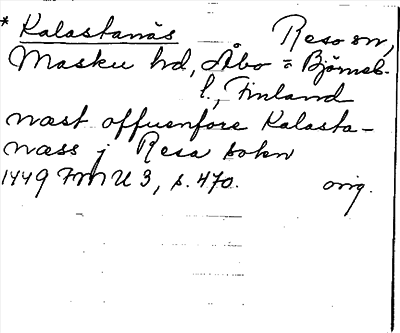 * Kalastanäs Reso sn,
Masku hd, Åbo = Björneb.
l., Finland
næst offuenfore Kalasta-
næss j Resa sokn
1449 FMU 3, s. 470. orig.